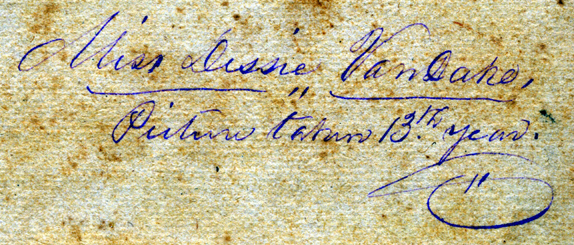 Miss Dessie VanDake,
Picture taken 13th year.